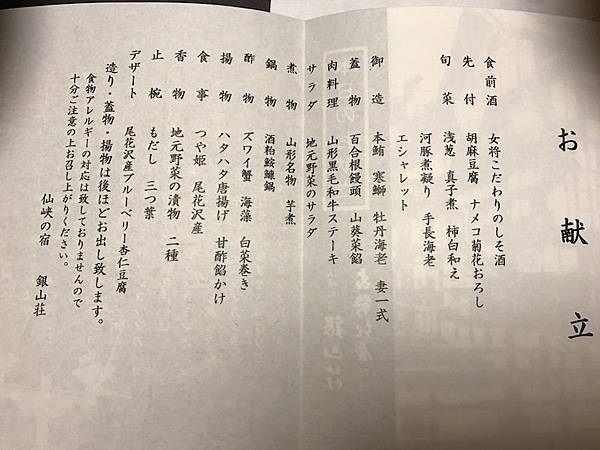 お献立
食前酒　女将こだわりのしそ酒
先付　胡麻豆腐　ナメコ菊花おろし
旬菜　浅葱　真子煮　柿白和え
河豚煮凝り　手長海老
エシャレット
御造　本鮪　寒鰤　牡丹海老　妻一式
蓋物　百合根饅頭　山葵菜餡
肉料理　山形黒毛和牛ステーキ
サラダ　地元野菜のサラダ
煮物　山形名物　芋煮
鍋物　酒粕鮟鱇鍋
酢物　ズワイ蟹　海藻　白菜巻き
揚物　ハタハタ唐揚げ　甘酢餡かけ
食事　つや姫　尾花沢産
香物　地元野菜の漬物　二種
止椀　もだし　三つ葉
デザート　尾花沢産ブルーベリー杏仁豆腐
造り・蓋物・揚物は後ほどお出し致します。
食物アレルギーの対応は致しておりませんので
十分ご注意の上お召し上がりください。
仙峡の宿　銀山荘